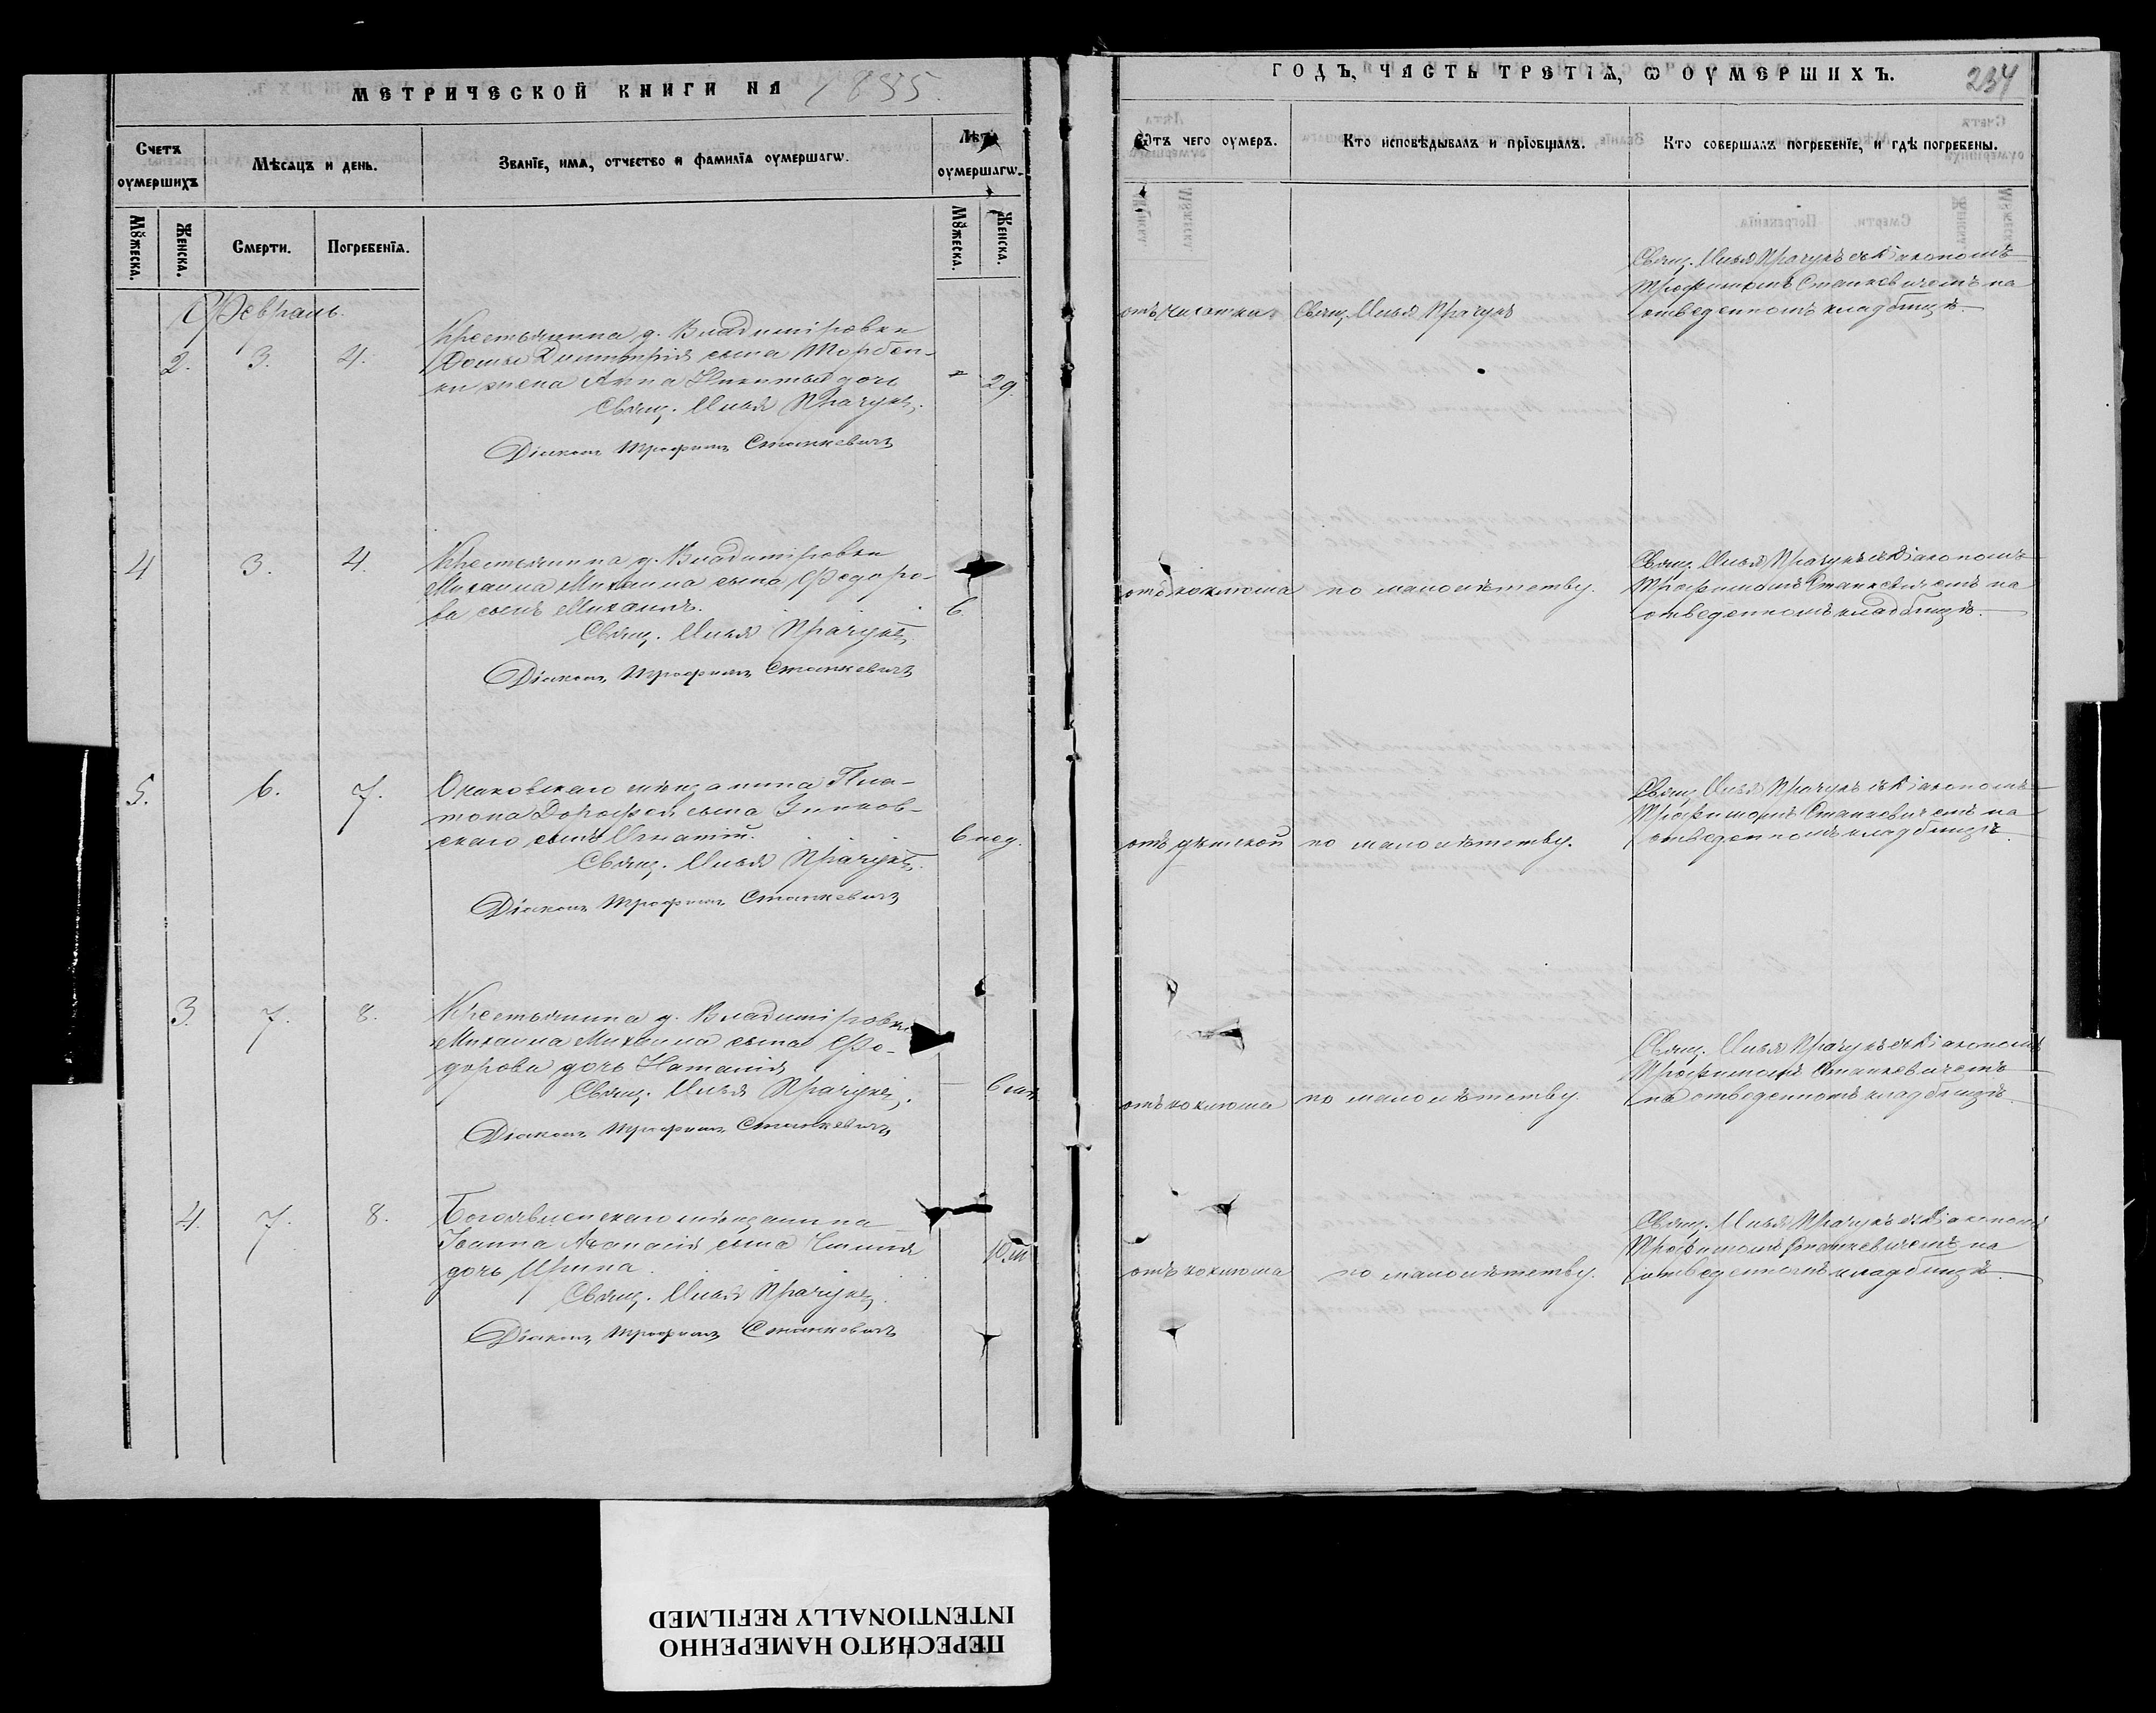 МЕТРИЧЕСКОЙ КНИГИ НА 1885.
ГОДЪ, ЧАСТЬ ТРЕТІЯ, Ѡ ОУМЕРШИХЪ.
234
Счетъ оумершихъ
Мѣсяцъ и день.
Званїе, имя, отчество и фамилїя оумершагѡ.
Лѣта оумершагѡ.
Ѿтъ чего оумеръ.
Кто исповѣдывалъ и прїобщалъ.
Кто совершалъ погребенїе, и гдѣ погребены.
Мꙋжеска.
Женска.
Смерти.
Погребенїя.
Мꙋжеска.
Женска.
Февраль.
2. 3. 4.
Крестьянина д. Владиміровки
Димитрія сына
жена Анна Никиты дочь
29.
Свящ. Илья Прачукъ.
Діаконъ Трофимъ Станкевичъ
отъ чахотки.
Свящ. Илья Прачукъ
Свящ. Илья Прачукъ съ Діакономъ
Трофимомъ Станкевичемъ на
отведенномъ кладбищѣ.
4 3. 4.
Крестьянина д. Владиміровки
Михаила Михаила сына Федоро-
ва сынъ Михаилъ.
6.
Свящ. Илья Прачукъ.
Діаконъ Трофимъ Станкевичъ
отъ коклюша
по малолѣтству.
Свящ. Илья Прачукъ съ Діакономъ
Трофимомъ Станкевичемъ на
отведенномъ кладбищѣ.
5. 6. 7.
Очаковскаго мѣщанина Пла-
тона Дорофея сына Зинков-
скаго сынъ Игнатій.
6 нед.
Свящ. Илья Прачукъ.
Діаконъ Трофимъ Станкевичъ
отъ дѣтской
по малолѣтству.
Свящ. Илья Прачукъ съ Діакономъ
Трофимомъ Станкевичемъ на
отведенномъ кладбищѣ.
3. 7. 8.
Крестьянина д. Владиміровки
Михаила Михаила сына Фе-
дорова дочь Наталія
Свящ. Илья Прачукъ.
Діаконъ Трофимъ Станкевичъ
отъ коклюша
по малолѣтству
Свящ. Илья Прачукъ съ Діакономъ
Трофимомъ Станкевичемъ
на отведенномъ кладбищѣ.
4. 7. 8.
Богоявленскаго мѣщанина
Іоанна Аѳанасія сына
дочь Ирина.
10 м.
Свящ. Илья Прачукъ.
Діаконъ Трофимъ Станкевичъ
отъ коклюша
по малолѣтству.
Свящ. Илья Прачукъ съ Діакономъ
Трофимомъ Станкевичемъ на
отведенномъ кладбищѣ.
ПЕРЕСНЯТО НАМЕРЕННО
INTENTIONALLY REFILMED